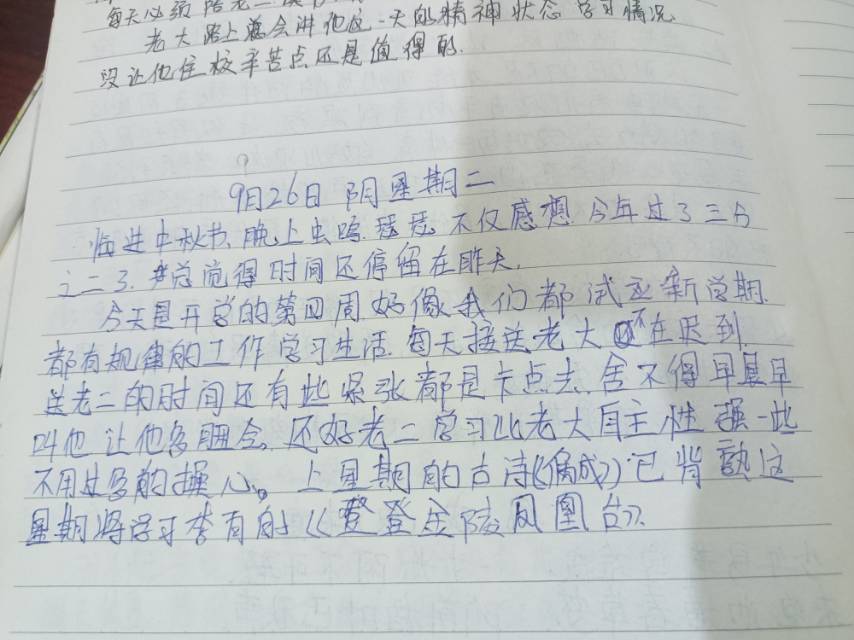 每天必须陪老二
老大路上总会讲他这一天的精神状态 学习情况
没让他住校辛苦点还是值得的.
9月26日 阴星期二
临进中秋节、晚上虫鸣 不仅感想 今年过了三分
之二了.总觉得时间还停留在昨天.
今天是开学的第四周好像我们都试应新学期.
都有规律的工作学习生活.每天接送老大不在迟到.
送老二的时间还有些紧张都是卡点去.舍不得早早
叫他 让他多睡会。还好老二学习比老大自主性强一些
不用过多的操心。上星期的古诗《偶成》已背熟这
星期将学习李白的《登金陵凤凰台》.